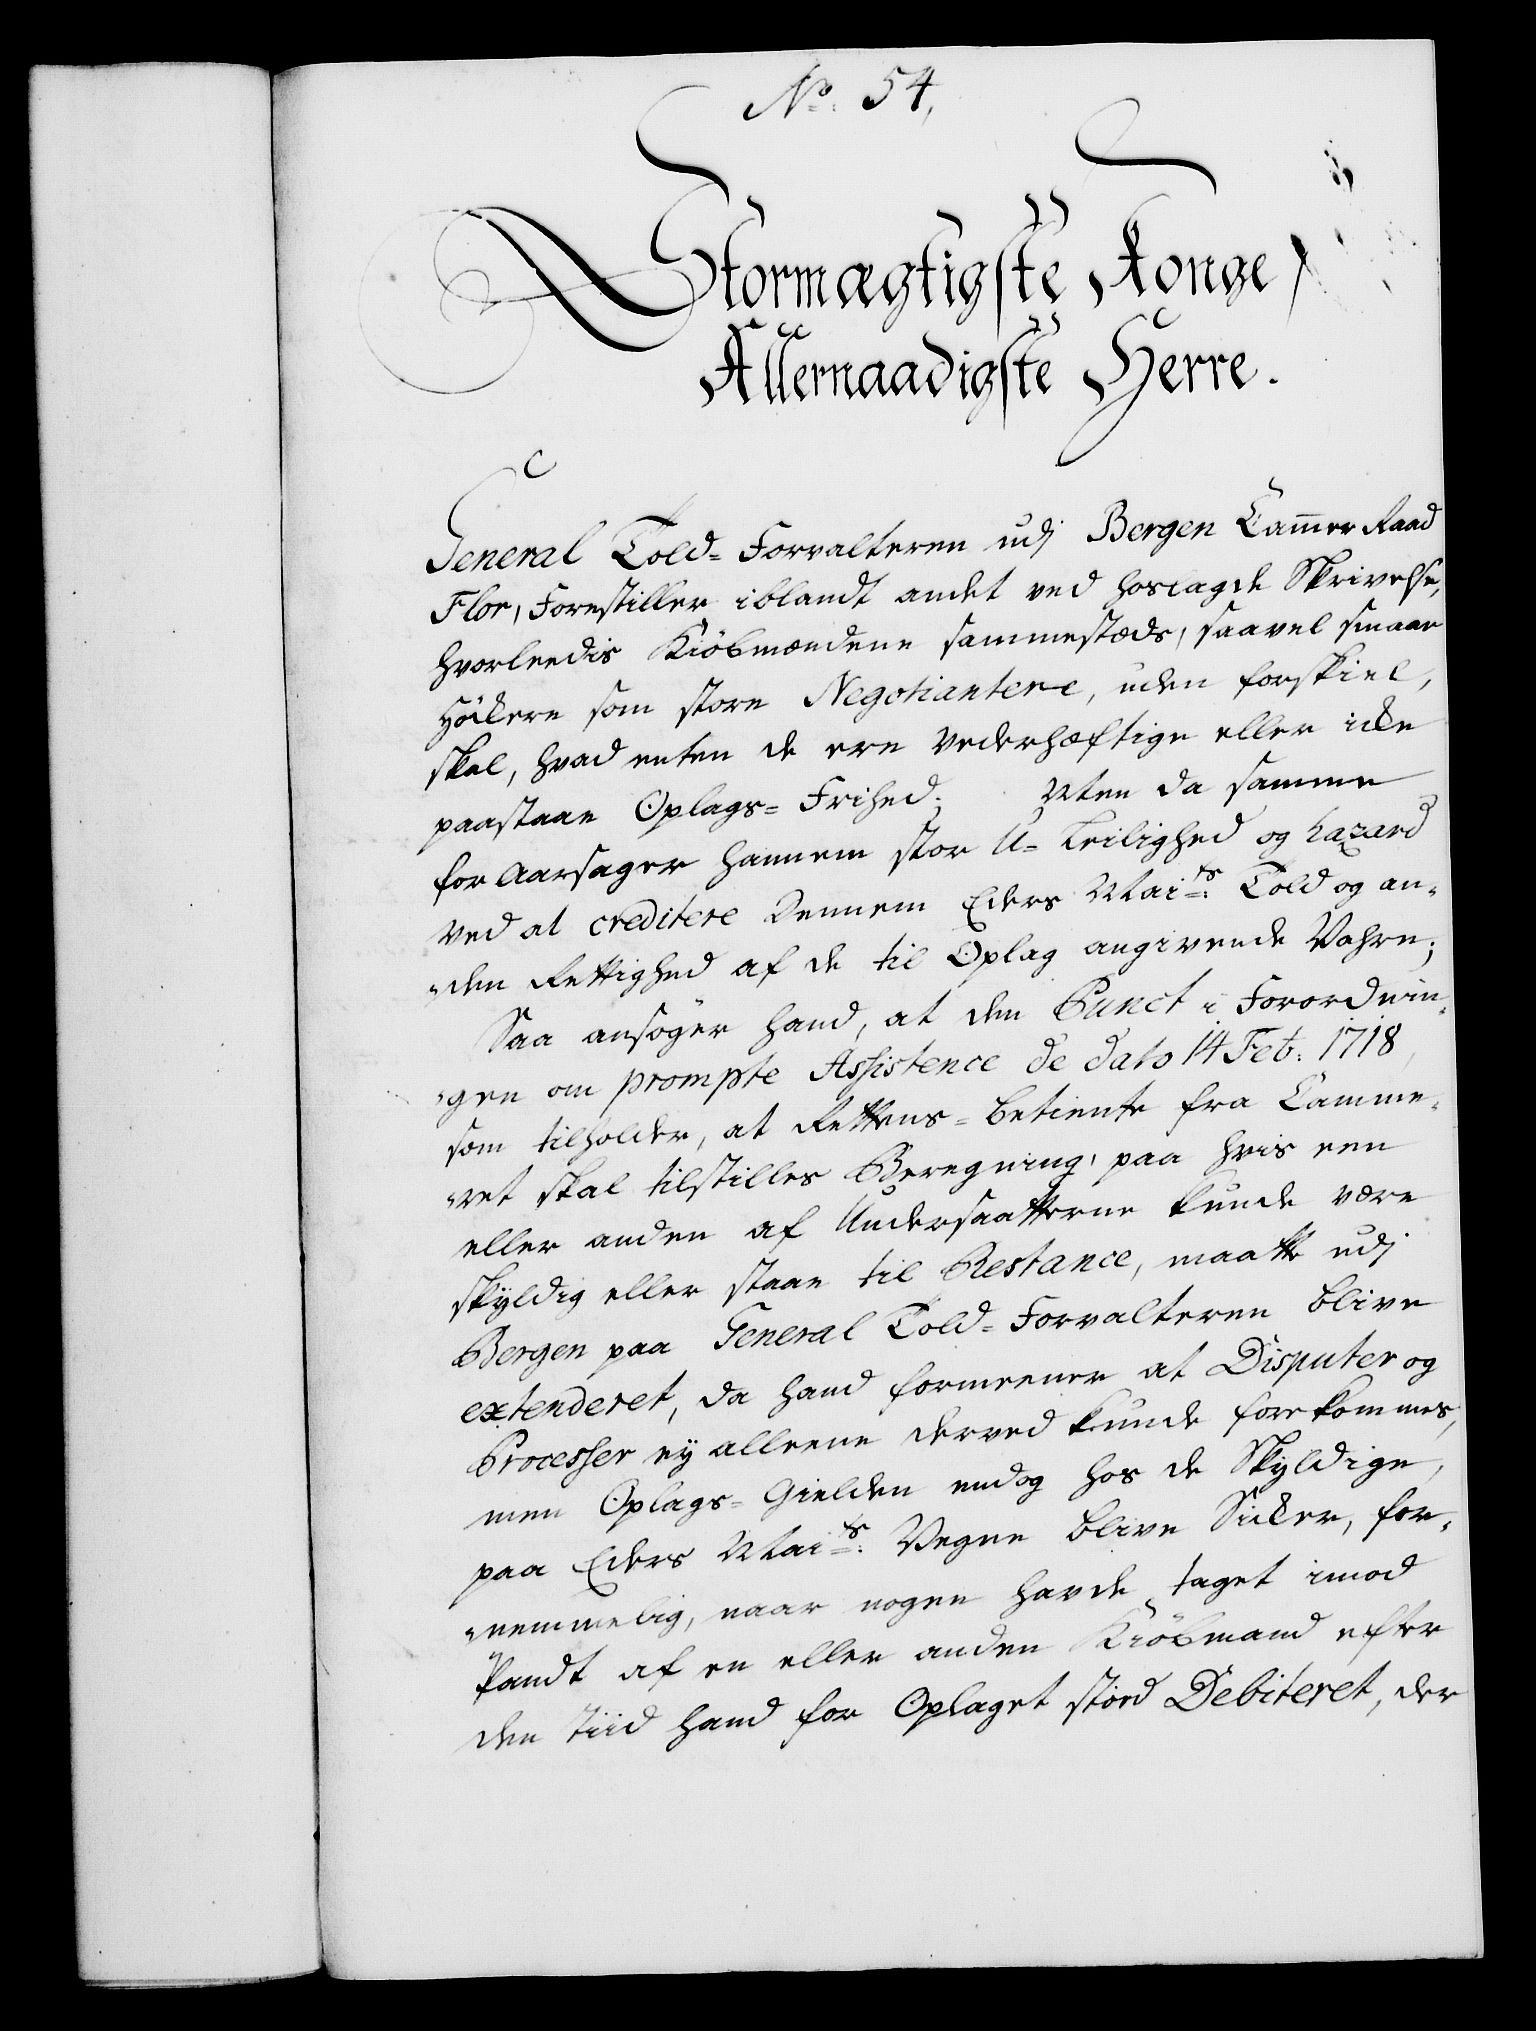 No. 54,
Stormægtigste Konge,
Allernaadigste Herre.
General Told-Forvalteren udj Bergen Cammer Raad
Flor, Forestiller iblandt andet ved hoslagde Skrivelse,
hvorleedis Kiöbmændene sammestæds, saavel smaae
Höckere som store Negotiantere, uden forskiel,
skal, hvad enten de ere Vederhæftige eller icke
paastaae Oplags-Frihed; Men da samme
foraarsager hannem stor U-Leilighed og hazard
ved at creditere dennem Eders Mais: Told og an-
den Rettighed af de til Oplag angivende Vahre;
Saa ansöger hand, at den Punct i Forordnin-
gen om prompte Assistence de dato 14 Feb: 1718,
som tilholder, at Rettens-betiente fra Camme-
ret skal tilstilles Beregning, paa hvis een
eller anden af Undersaatterne kunde være
skyldig eller staae til Restance, maatte udj
Bergen paa General Told-Forvalteren blive
extenderet, da hand formeener at Disputer og
Processer ey alleene derved kunde forekommes,
men Oplags-Gielden endog hos de Skyldige,
paa Eders Mais: Vegne blive Sicker, for-
nemmelig, naar nogen havde taget imod
Pandt af en eller anden Kiöbmand efter
den Tiid hand for Oplaget stod Debiteret, der